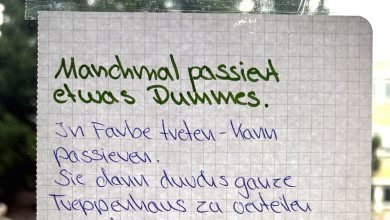 Manchmal passiert
etwas Dummes.
In Farbe treten - kann
passieren.
Sie dann durchs ganze
Treppenhaus zu verteilen